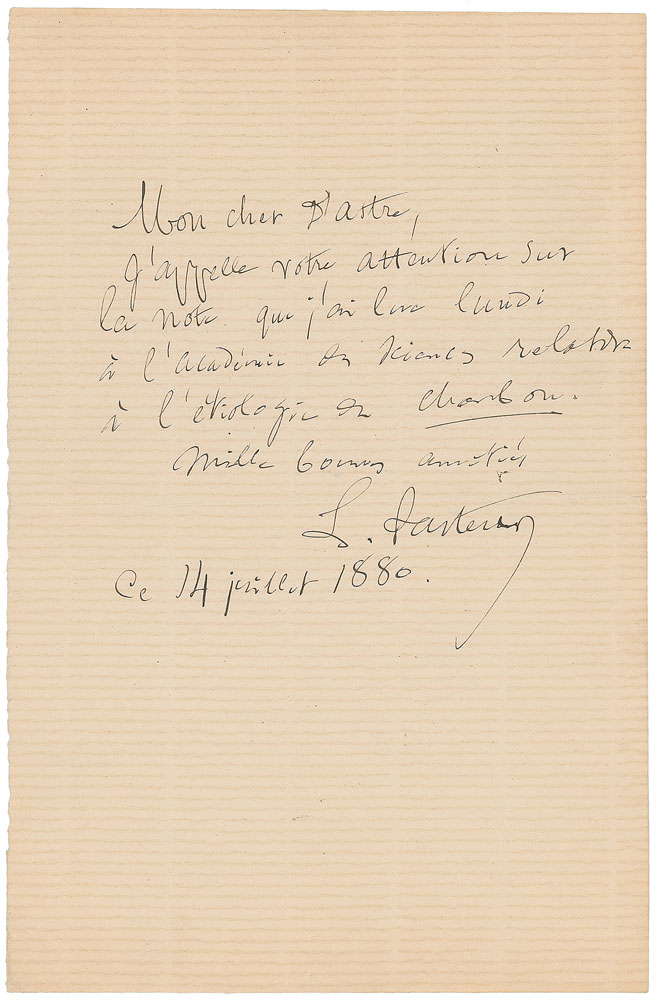 Mon cher D'astre,
J'appelle votre attention sur
la note que j'ai lue lundi
à l'académie des Sciences relative
à l'étiologie du charbon.
Mille bonnes amitiés
L. Pasteur
Ce 14 juillet 1880.